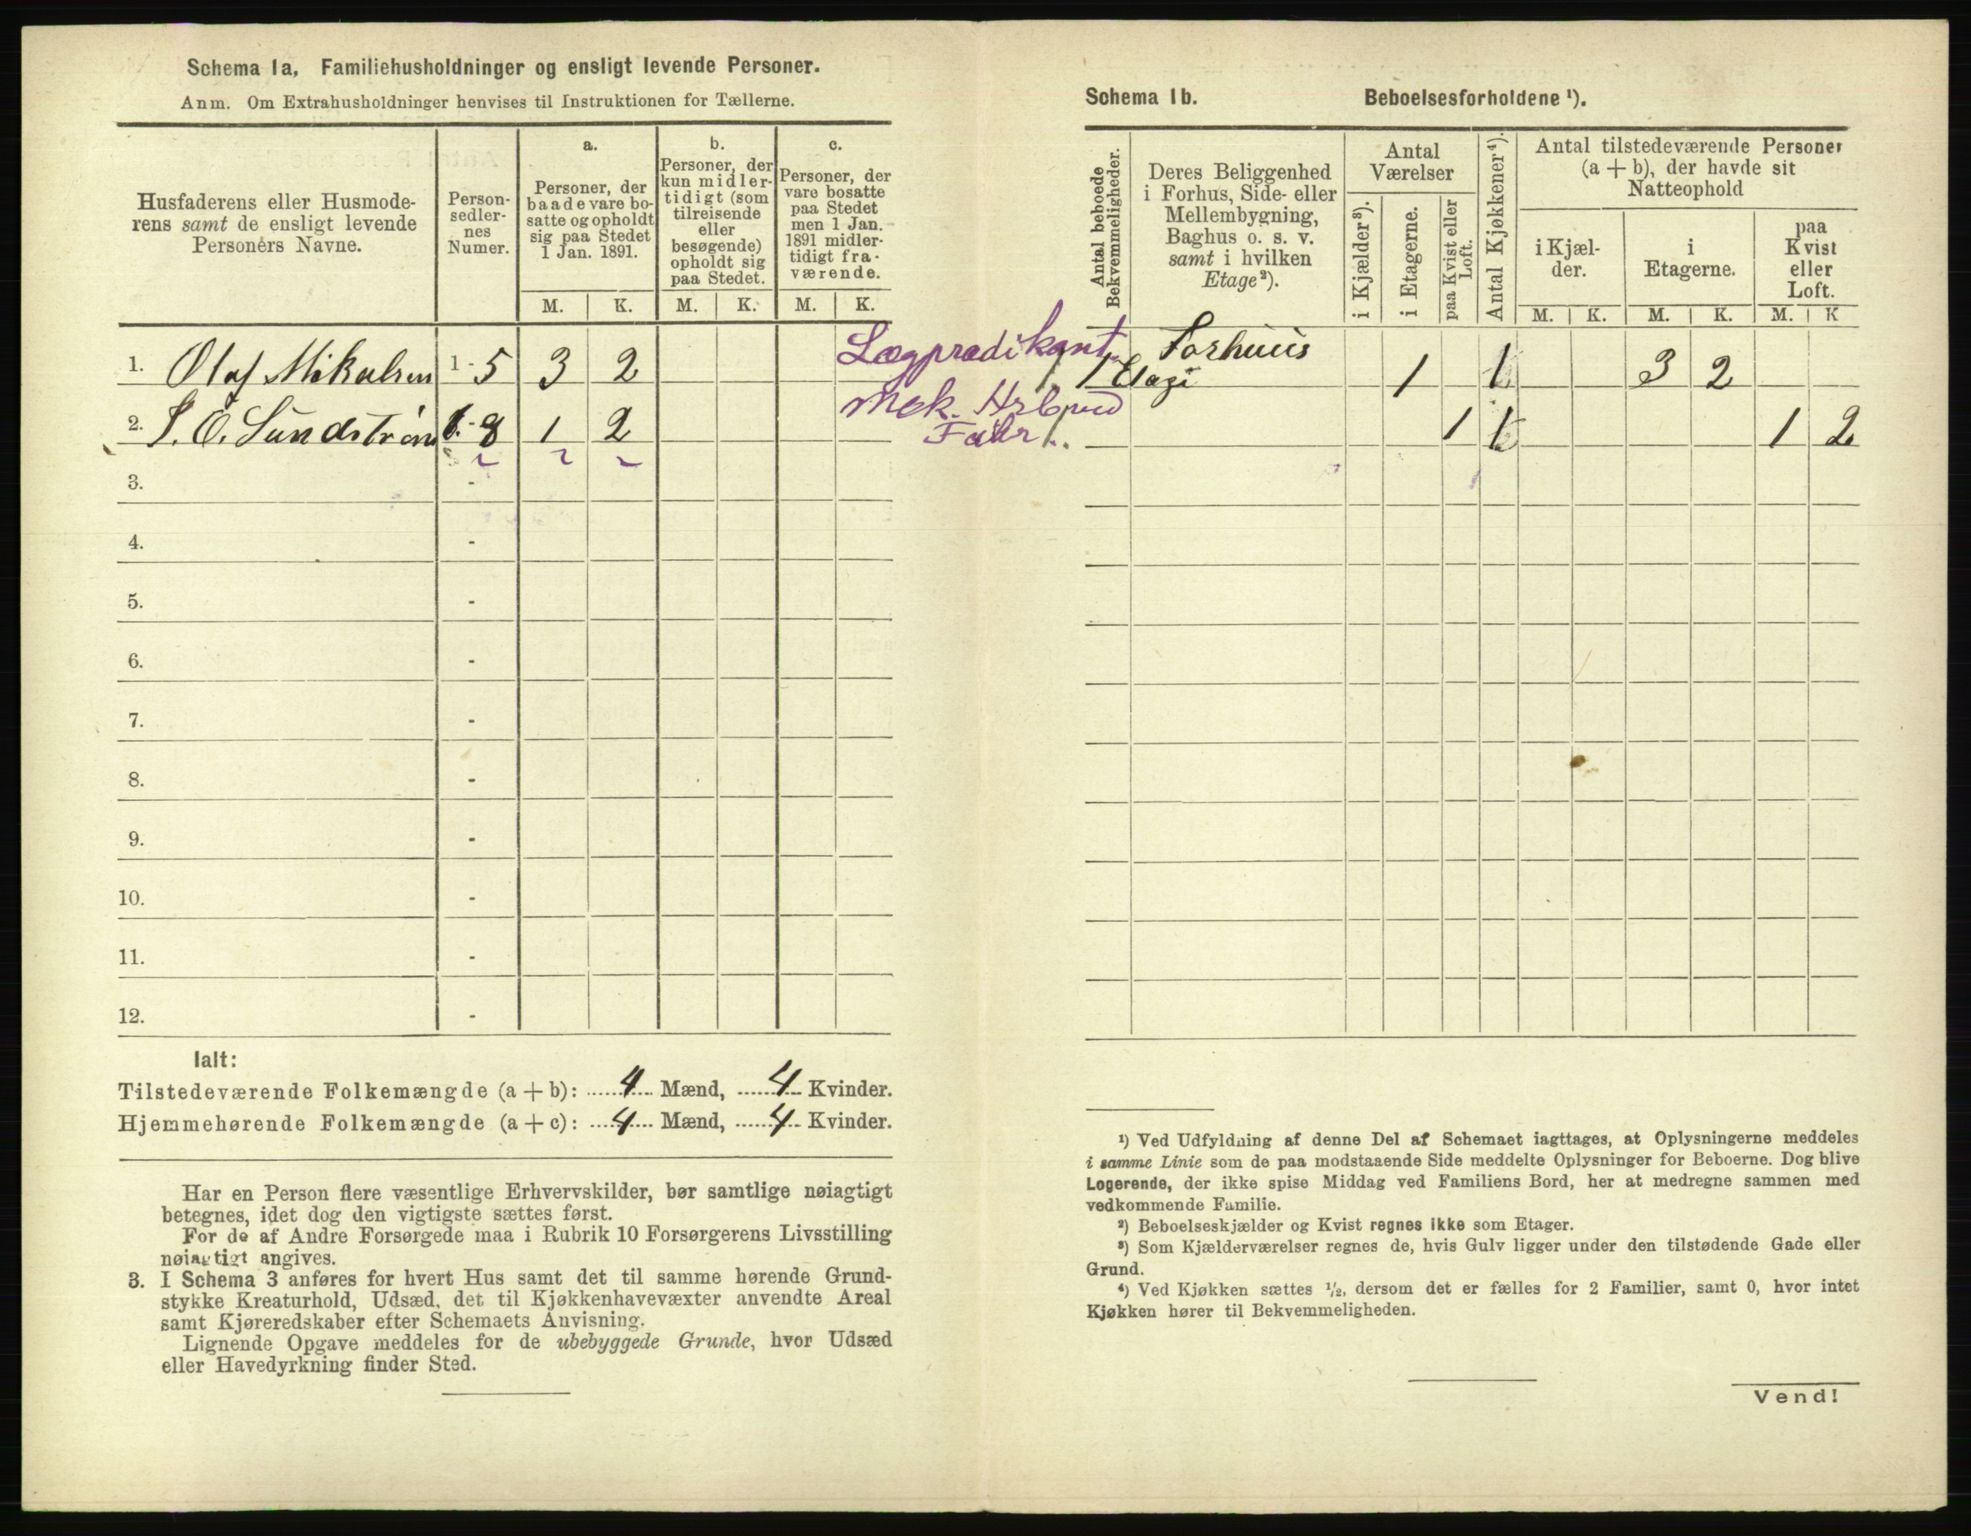 Schema 1a, Familiehusholdninger og ensligt levende Personer.
Anm. Om Extrahusholdninger henvises til Instruktionen for Tællerne.
Husfaderens eller Husmode-
rens samt de ensligt levende
Personers Navne.
Person-
sedler-
nes
Numer.
a.
Personer, der
baade vare bo-
satte og opholdt
sig paa Stedet
1 Jan. 1891.
b.
Personer, der
kun midler-
tidigt (som
tilreisende
eller
besøgende)
opholdt sig
paa Stedet.
c.
Personer, der
vare bosatte
paa Stedet
men 1 Jan.
1891 midler-
tidigt fra-
værende.
M. K. M. K. M. K.
1. Olaf Mikalsen 1 - 5 3 2 Lægprædikant
2. S. O. Sundstrøm 6 - 8 1 2 Mek.
3. -
4. -
5. -
6. -
7. -
8. -
9. -
10. -
11. -
12. -
Ialt:
Tilstedeværende Folkemængde (a + b): 4 Mænd, 4 Kvinder.
Hjemmehørende Folkemængde (a + c): 4 Mænd, 4 Kvinder.
Har en Person flere væsentlige Erhvervskilder, bør samtlige nøiagtigt
betegnes, idet dog den vigtigste sættes først.
For de af Andre Forsørgede maa i Rubrik 10 Forsørgerens Livsstilling
nøiagtigt angives.
3. I Schema 3 anføres for hvert Hus samt det til samme hørende Grund-
stykke Kreaturhold, Udsæd, det til Kjøkkenhavevæxter anvendte Areal
samt Kjøreredskaber efter Schemaets Anvisning.
Lignende Opgave meddeles for de ubebyggede Grunde, hvor Udsæd
eller Havedyrkning finder Sted.
Schema 1b. Beboelsesforholdene ¹).
Antal beboede
Bekvemmeligheder.
Deres Beliggenhed
i Forhus, Side- eller
Mellembygning,
Baghus o. s. v.
samt i hvilken
Etage²).
Antal
Værelser
i Kjælder³).
i Etagerne.
paa Kvist eller
Loft.
Antal Kjøkkener⁴).
Antal tilstedeværende Personer
(a + b), der havde sit
Natteophold
i Kjæl-
der.
i
Etagerne.
paa
Kvist
eller
Loft.
M. K. M. K. M. K
Forhuus
1 1 1 3 2
1 1 1 2
¹) Ved Udfyldning af denne Del af Schemaet iagttages, at Oplysningerne meddeles
i samme Linie som de paa modstaaende Side meddelte Oplysninger for Beboerne. Dog blive
Logerende, der ikke spise Middag ved Familiens Bord, her at medregne sammen med
vedkommende Familie.
²) Beboelseskjælder og Kvist regnes ikke som Etager.
³) Som Kjælderværelser regnes de, hvis Gulv ligger under den tilstødende Gade eller
Grund.
⁴) Ved Kjøkken sættes ½, dersom det er fælles for 2 Familier, samt 0, hvor intet
Kjøkken hører til Bekvemmeligheden.
Vend!